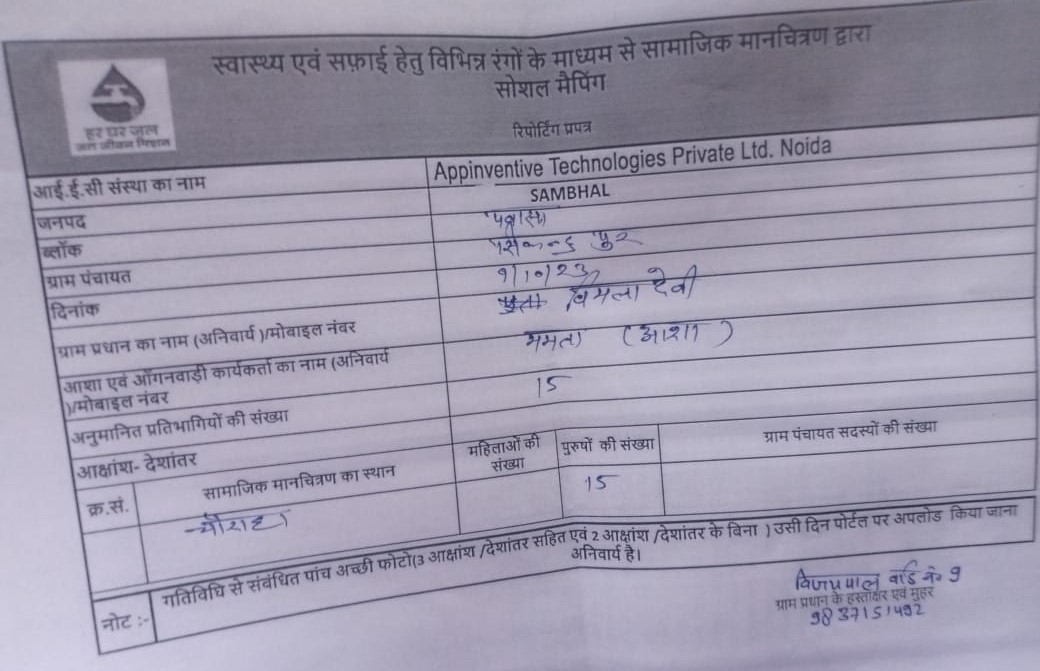 स्वास्थ्य एवं सफ़ाई हेतु विभिन्न रंगों के माध्यम से सामाजिक मानचित्रण द्वारा
सोशल मैपिंग
हर घर जल
जल जीवन मिशन
रिपोर्टिंग प्रपत्र
आई.ई.सी संस्था का नाम Appinventive Technologies Private Ltd. Noida
जनपद SAMBHAL
ब्लॉक पवांसा
ग्राम पंचायत पुर
दिनांक 9/10/23
ग्राम प्रधान का नाम (अनिवार्य )/मोबाइल नंबर विमला देवी
आशा एवं आँगनवाड़ी कार्यकर्ता का नाम (अनिवार्य ममता (आशा)
)/मोबाइल नंबर
अनुमानित प्रतिभागियों की संख्या 15
आक्षांश- देशांतर
क्र.सं. सामाजिक मानचित्रण का स्थान महिलाओं की संख्या पुरुषों की संख्या ग्राम पंचायत सदस्यों की संख्या
चौराहा 15
नोट :- गतिविधि से संबंधित पांच अच्छी फोटो(3 आक्षांश /देशांतर सहित एवं 2 आक्षांश /देशांतर के बिना ) उसी दिन पोर्टल पर अपलोड किया जाना
अनिवार्य है।
विजयपाल वार्ड नं० 9
ग्राम प्रधान के हस्ताक्षर एवं मुहर
9837151492